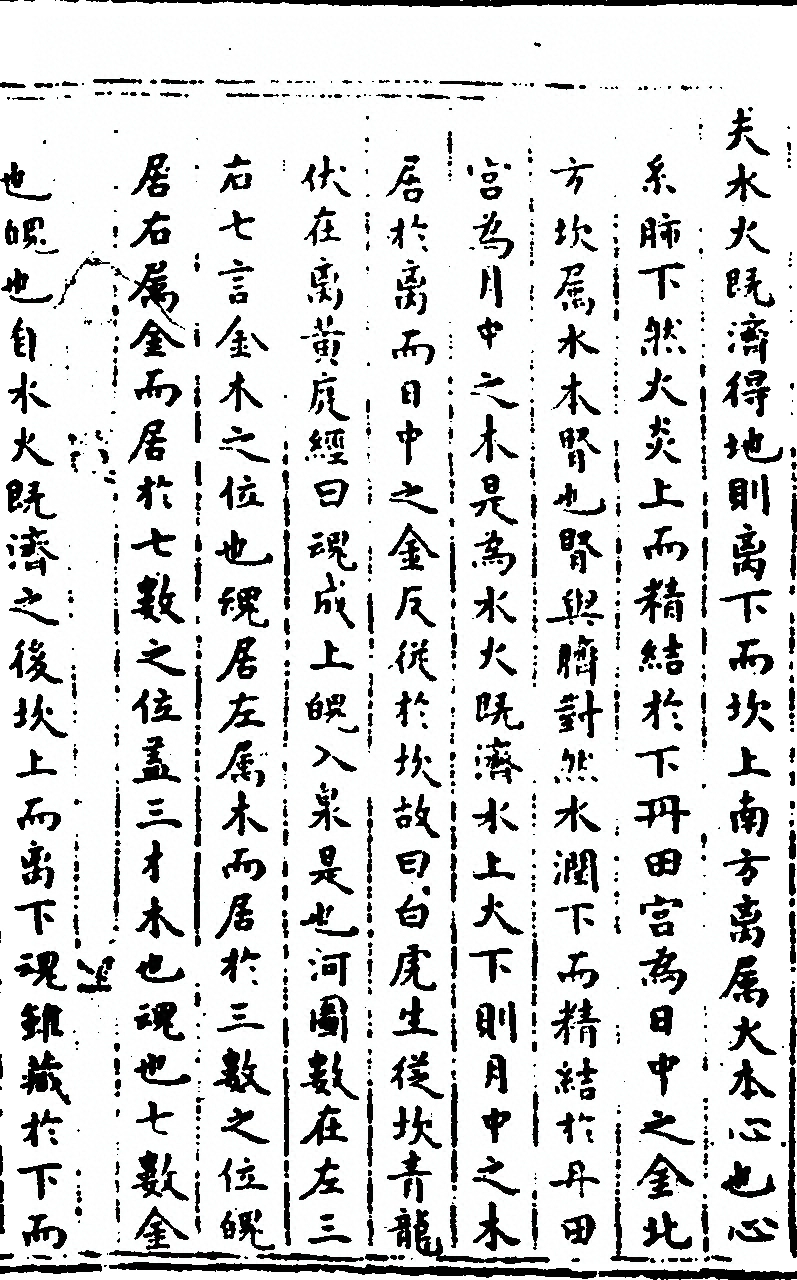 夫水火既濟得地則离下而坎上南方离属火本心也心
系肺下然火炎上而精結於下丹田宫為日中之金北
方坎属水本腎也腎與臍對然水潤下而精結於丹田
宫為月中之木是為水火既濟水上火下則月中之木
居於离而日中之金反從於坎故曰白虎生從坎青龍
伏在离黄庭經曰魂成上魄入泉是也河圖數在左三
右七言金木之位也魂居左属木而居於三數之位魄
居右属金而居於七數之位盖三才木也魂也七數金
也魄也自水火既濟之後坎上而离下魂雖藏於下而